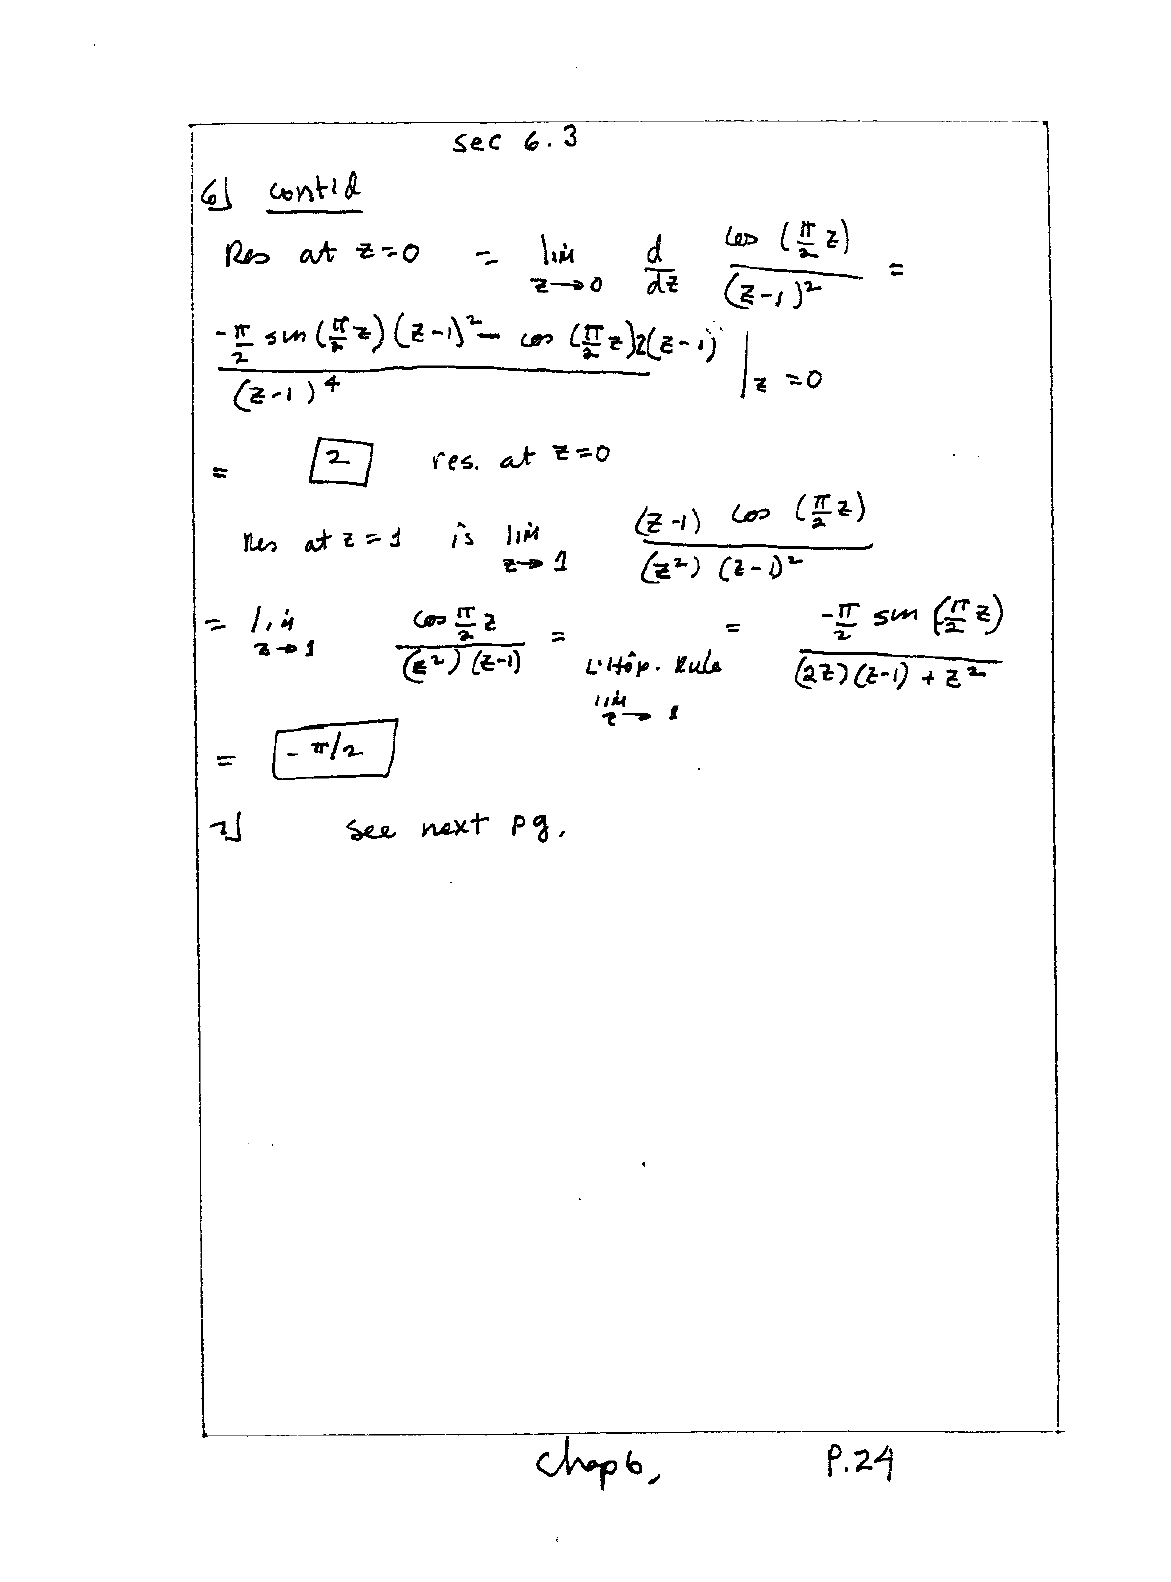 sec 6.3
6] cont'd
Res at z=0 = lim z→0 d/dz cos (π/2 z) / (z-1)² =
-π/2 sin(π/2 z)(z-1)² - cos (π/2 z)2(z-1) / (z-1)⁴ | z=0
= 2 res. at z=0
Res at z=1 is lim z→1 (z-1) cos (π/2 z) / (z²) (z-1)²
= lim z→1 cos π/2 z / (z²) (z-1) = L'Hôp. Rule lim z→1 = -π/2 sin (π/2 z) / (2z)(z-1) + z²
= -π/2
7] See next pg.
Chap 6, P.24